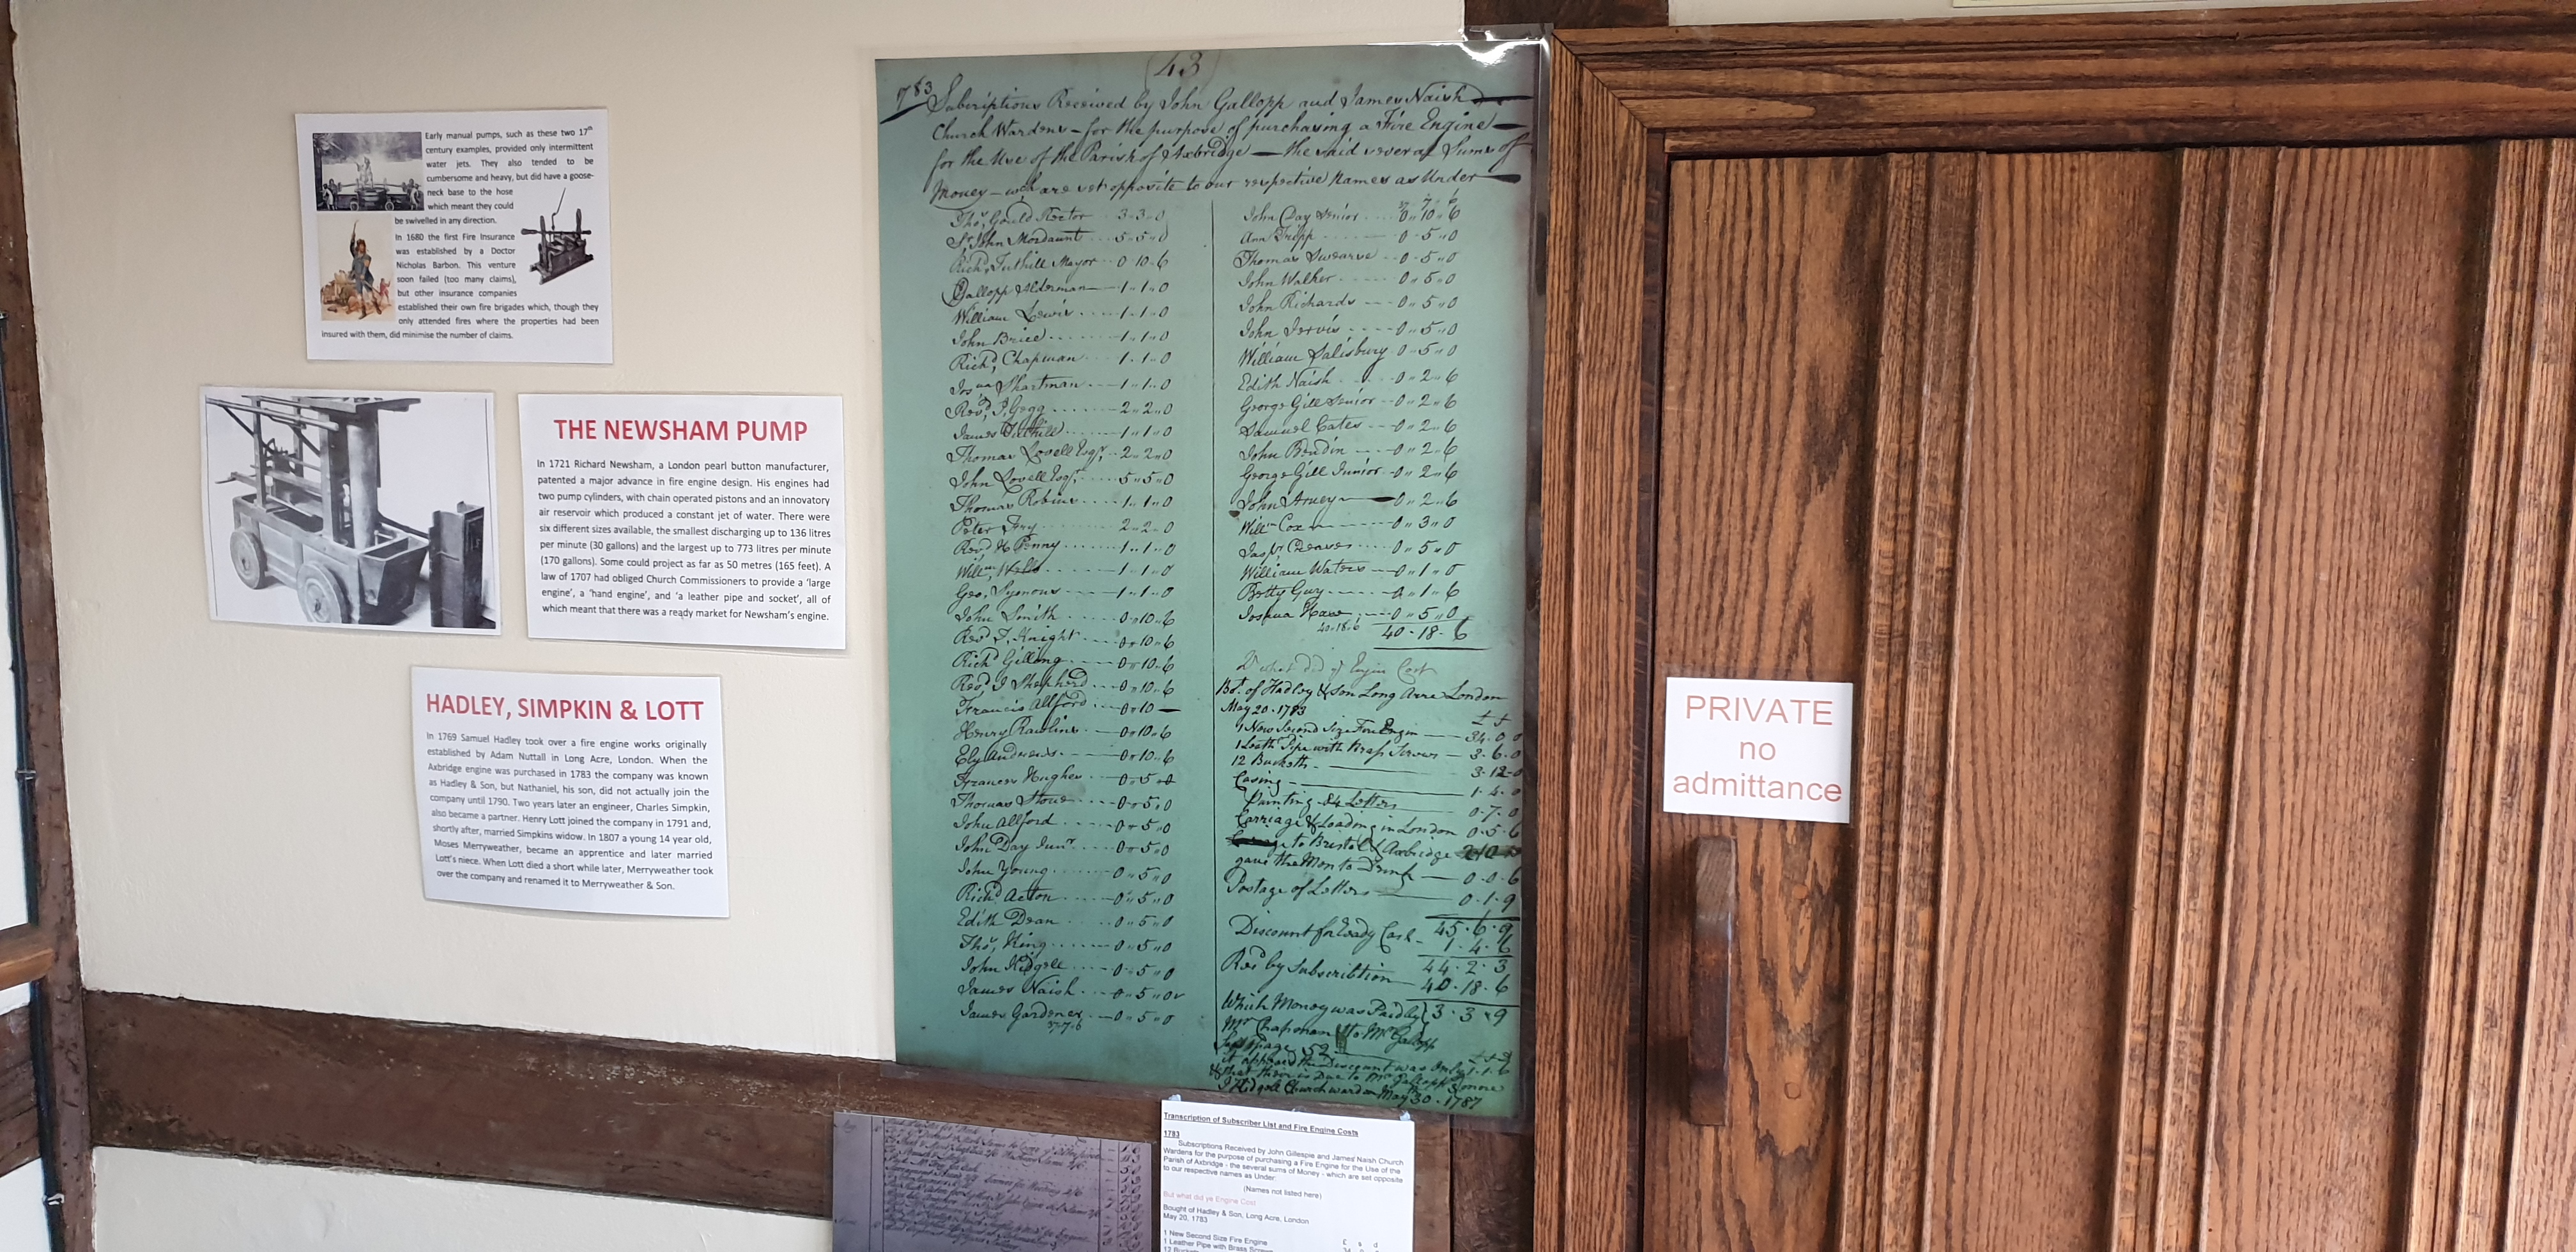 Early manual pumps, such as these two 17th
century examples, provided only intermittent
water jets. They also tended to be
cumbersome and heavy, but did have a goose-
neck base to the hose
which meant they could
be swivelled in any direction.
In 1680 the first Fire Insurance
was established by a Doctor
Nicholas Barbon. This venture
soon failed (too many claims),
but other insurance companies
established their own fire brigades which, though they
only attended fires where the properties had been
insured with them, did minimise the number of claims.
THE NEWSHAM PUMP
In 1721 Richard Newsham, a London pearl button manufacturer,
patented a major advance in fire engine design. His engines had
two pump cylinders, with chain operated pistons and an innovatory
air reservoir which produced a constant jet of water. There were
six different sizes available, the smallest discharging up to 136 litres
per minute (30 gallons) and the largest up to 773 litres per minute
(170 gallons). Some could project as far as 50 metres (165 feet). A
law of 1707 had obliged Church Commissioners to provide a 'large
engine', a 'hand engine', and 'a leather pipe and socket', all of
which meant that there was a ready market for Newsham's engine.
HADLEY, SIMPKIN & LOTT
In 1769 Samuel Hadley took over a fire engine works originally
established by Adam Nuttall in Long Acre, London. When the
Axbridge engine was purchased in 1783 the company was known
as Hadley & Son, but Nathaniel, his son, did not actually join the
company until 1790. Two years later an engineer, Charles Simpkin,
also became a partner. Henry Lott joined the company in 1791 and,
shortly after, married Simpkins widow. In 1807 a young 14 year old,
Moses Merryweather, became an apprentice and later married
Lott's niece. When Lott died a short while later, Merryweather took
over the company and renamed it to Merryweather & Son.
(43)
1783 Subscriptions Received by John Gallopp and James Naish
Church Wardens – for the purpose of purchasing a Fire Engine
for the Use of the Parish of Axbridge – the said several Sums of
Money – wch are set opposite to our respective Names as Under
Thos. Gould Rector 3 3 0
Sr. John Mordaunt 5 5 0
Richd. Tuthill Mayor 0 10 6
Gallopp Alderman 1 1 0
William Lewis 1 1 0
John Brice 1 1 0
Richd. Chapman 1 1 0
Shartman 1 1 0
Revd. Gegg 2 2 0
James Tuthill 1 1 0
Thomas Lovell Esqr. 2 2 0
John Lovell Esqr. 5 5 0
Thomas Robins 1 1 0
Peter Fry 2 2 0
Revd. Penny 1 1 0
Willm. Wells 1 1 0
Geo. Symons 1 1 0
John Smith 0 10 6
Revd. Knight 0 10 6
Richd. Gilling 0 10 6
Revd. J Shepherd 0 10 6
Francis Allford 0 10
Henry Rawlins 0 10 6
Ely Andrews 0 10 6
Frances Hughes 0 5 0
Thomas Stone 0 5 0
John Allford 0 5 0
John Day Junr. 0 5 0
John Young 0 5 0
Richd. Acton 0 5 0
Edith Dean 0 5 0
Thos. King 0 5 0
John Kidgell 0 5 0
James Naish 0 5 0
James Gardener 0 5 0
37 7 6
37 7 6
John Day Senior 0 10 6
Ann Tripp 0 5 0
Thomas 0 5 0
John Walker 0 5 0
John Richards 0 5 0
John Jervis 0 5 0
William Salisbury 0 5 0
Edith Naish 0 2 6
George Gill Senior 0 2 6
Samuel Cates 0 2 6
John 0 2 6
George Gill Junior 0 2 6
John 0 2 6
Willm Cox 0 3 0
Greaves 0 5 0
William Waters 0 1 0
Betty Guy 0 1 6
Joshua 0 5 0
40 18 6 40 18 6
what did ye Engin Cost
Bot. of Hadley & Son Long Acre London
May 20 1783
1 New Second Size Fire Engin 34 0 0
1 Leath Pipe with Brass Screws 3 6 0
12 Bucketts 3 12 0
Casing 1 4 0
Painting 84 Letters 0 7 0
Carriage & Loading in London 0 5 6
to Bristol & Axbridge
gave the Men to Drink 0 0 6
Postage of Letters 0 1 9
45 6 9
Discount for Ready Cash 1 4 6
44 2 3
Recd by Subscribtion 40 18 6
Which Money was Paid by 3 3 9
Mr Chapman to Mr Galopp
Page 52
it appears the Discount was Only 1 1 6
that there is Due to Mr Galopp more
J Kidgell Churchwarden May 30 1787
PRIVATE
no
admittance
Transcription of Subscriber List and Fire Engine Costs
1783
Subscriptions Received by John Gillespie and James Naish Church
Wardens for the purpose of purchasing a Fire Engine for the Use of the
Parish of Axbridge - the several sums of Money - which are set opposite
to our respective names as Under:
(Names not listed here)
But what did ye Engine Cost
Bought of Hadley & Son, Long Acre, London
May 20, 1783
£ s d
1 New Second Size Fire Engine
1 Leather Pipe with Brass Screws